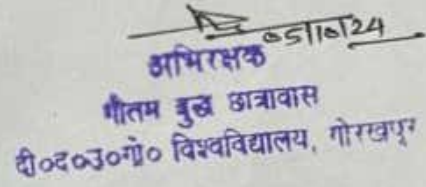 05/10/24
अभिरक्षक
गौतम बुद्ध छात्रावास
दी०द०उ०गो० विश्वविद्यालय, गोरखपुर